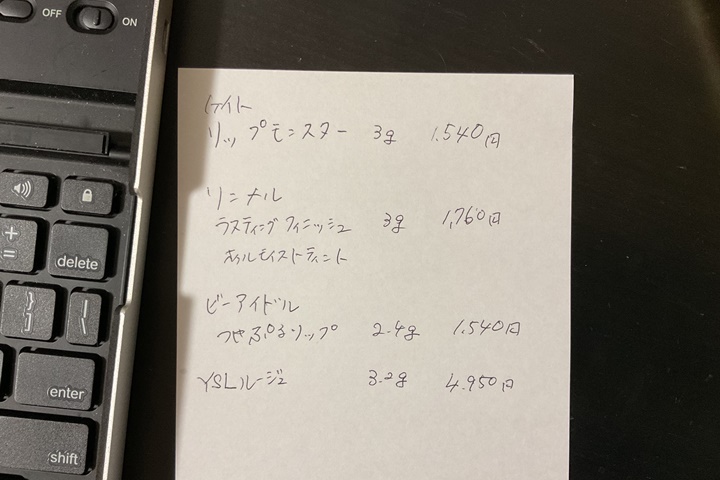 OFF ON
+
=
delete
}
]
{
[
|
\
enter
shift
ケイト
リップモンスター 3g 1,540円
リンメル
ラスティングフィニッシュ 3g 1,760円
オイルモイストティント
ビーアイドル
つやぷるリップ 2.4g 1,540円
YSLルージュ 3.2g 4,950円